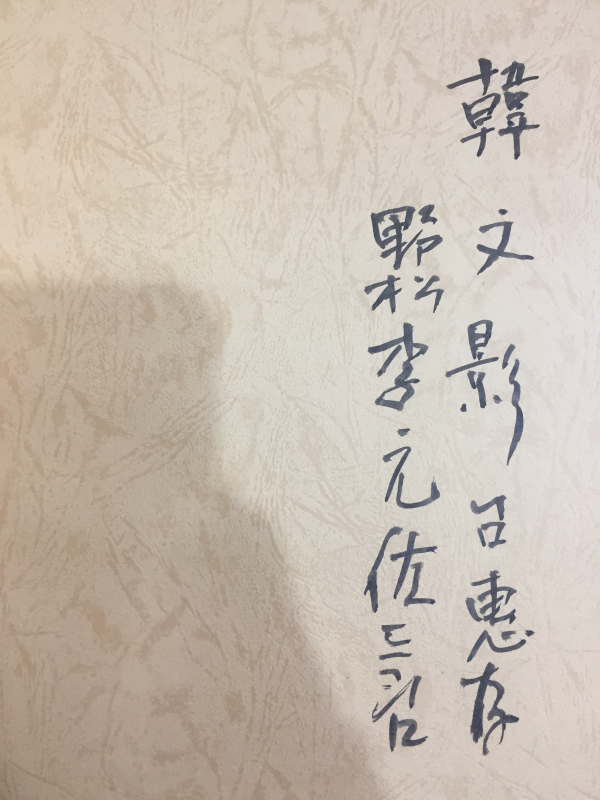 韓文影 呂惠存
野松李元佐드림